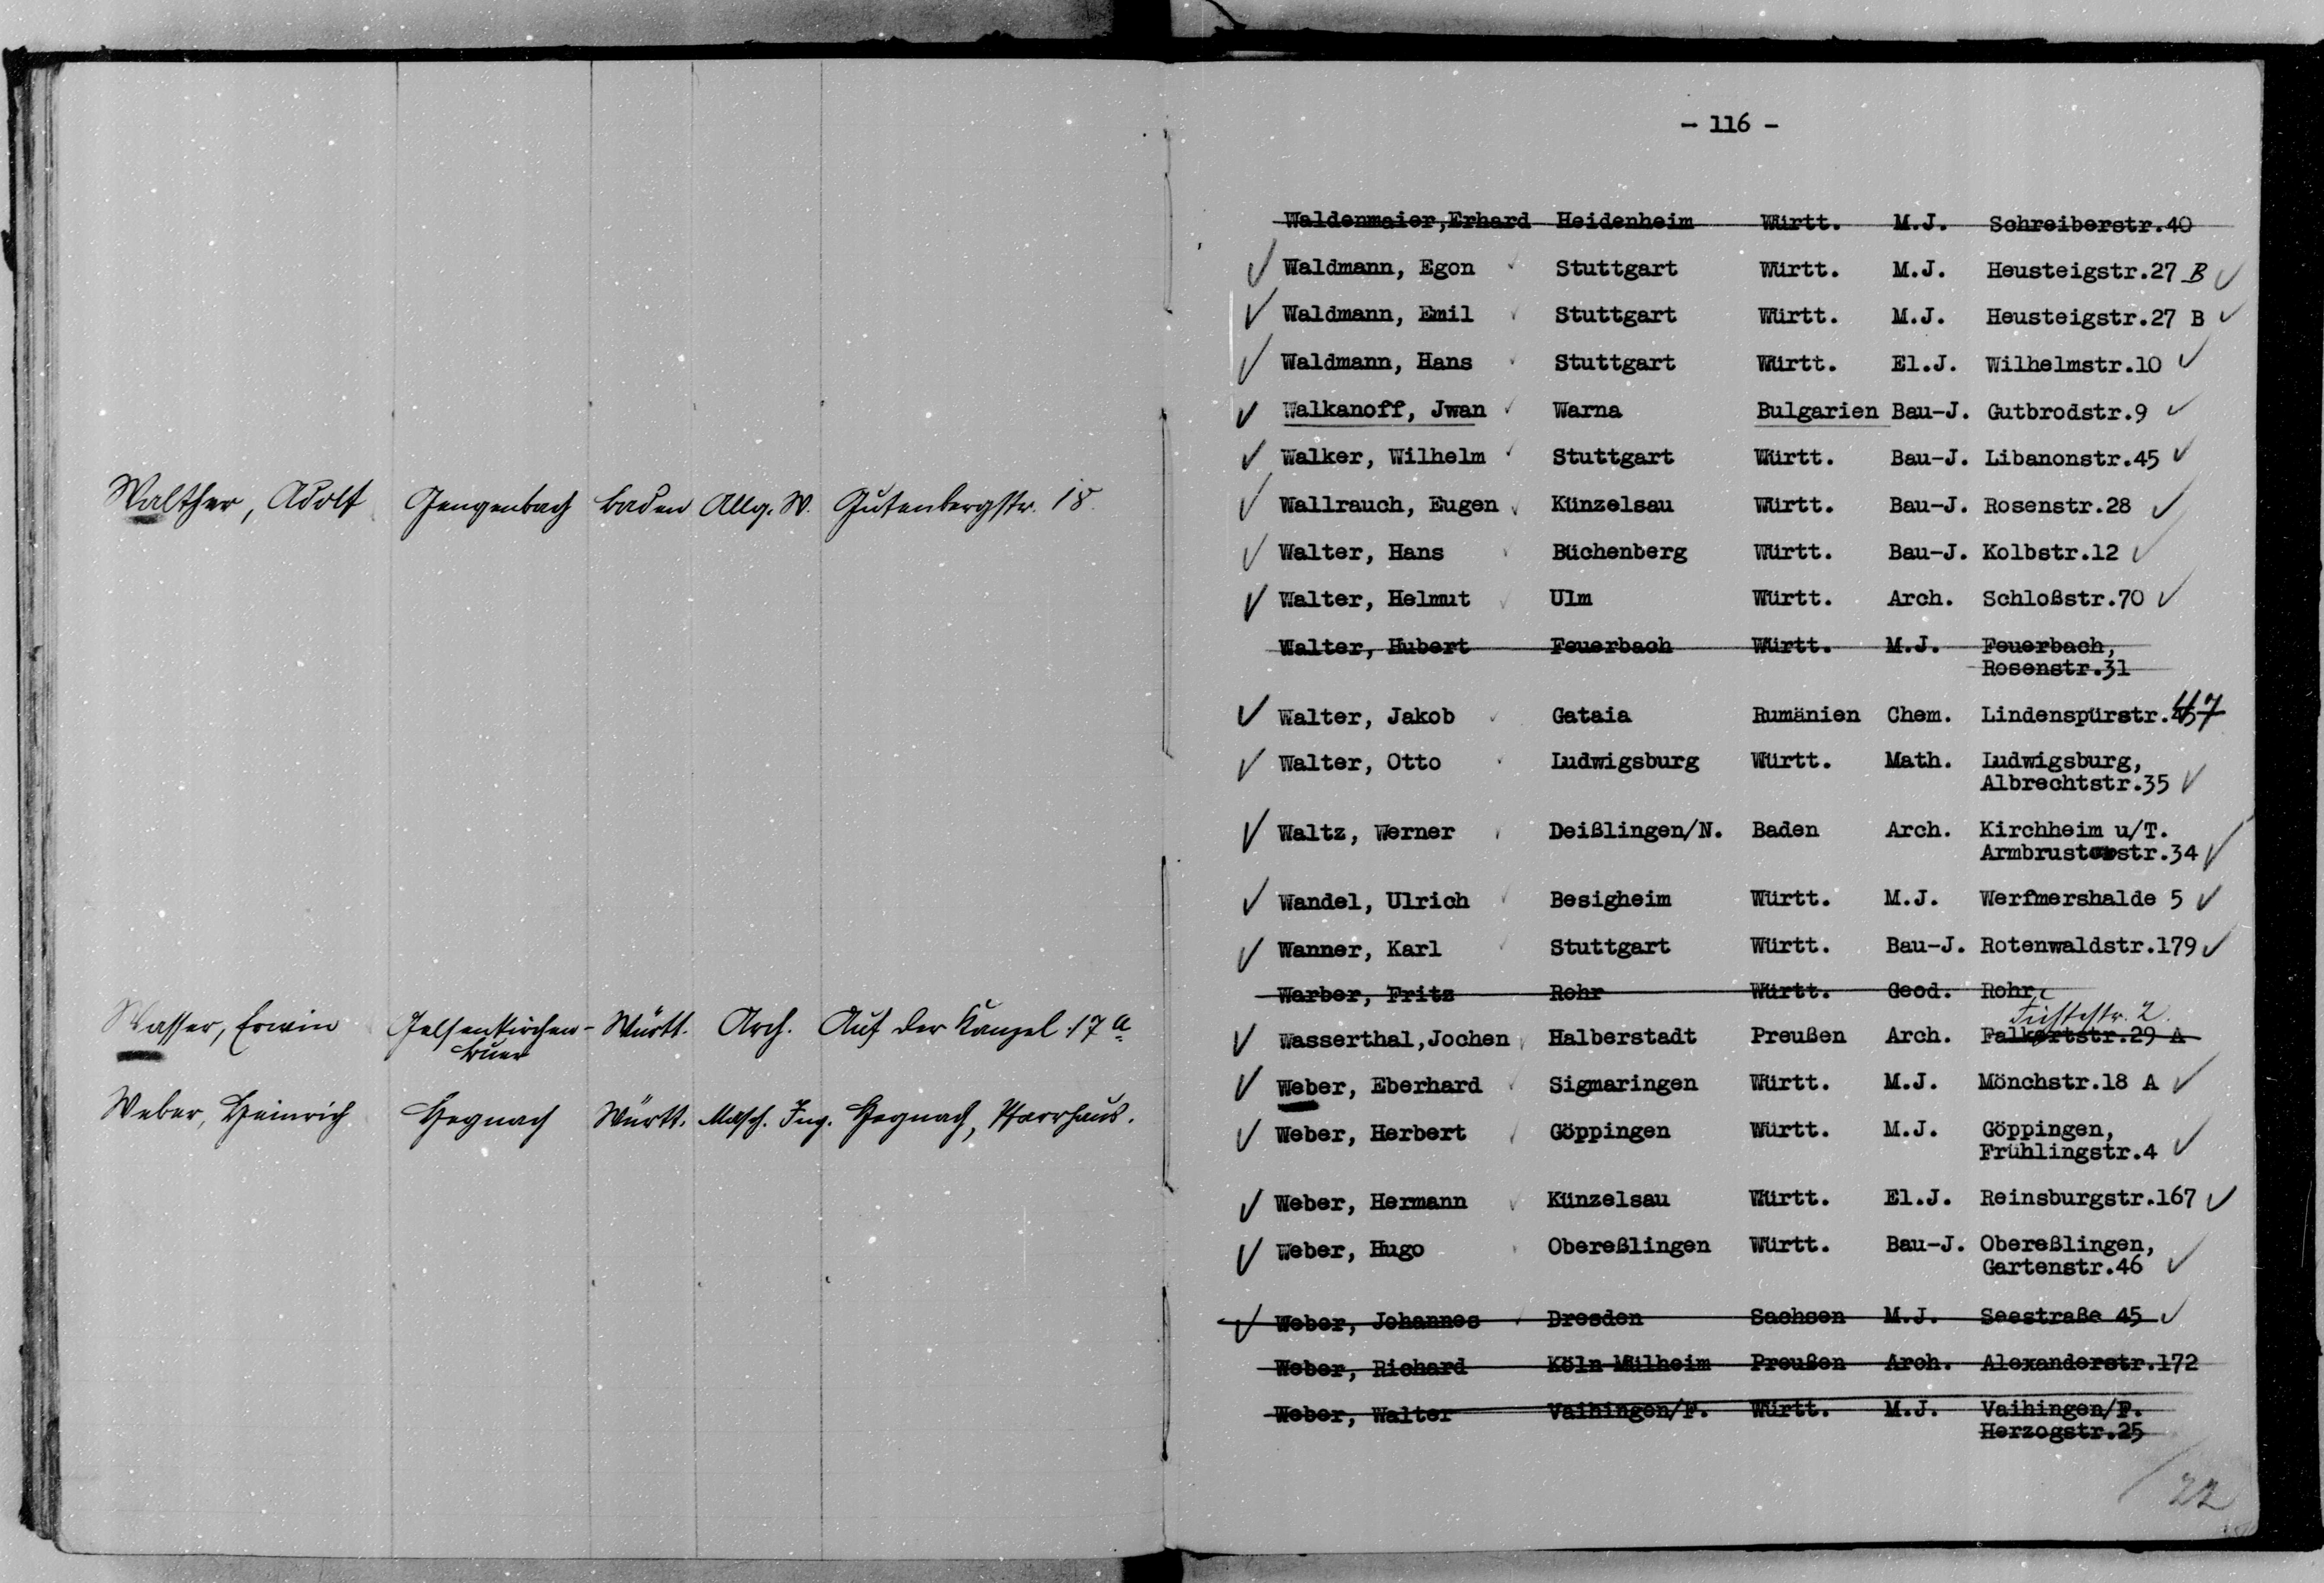 Walther, Adolf Gengenbach Baden Allg. W. Gutenbergstr. 18.
Wasser, Erwin Gelsenkirchen- Württ. Arch. Auf der Kanzel 17 a
Buer
Weber, Heinrich Hegnach Württ. Masch. Ing. Hegnach, Pfarrhaus.
- 116 -
Waldenmaier,Erhard Heidenheim Württ. M.J. Schreiberstr.40
Waldmann, Egon Stuttgart Württ. M.J. Heusteigstr.27 B
Waldmann, Emil Stuttgart Württ. M.J. Heusteigstr.27 B
Waldmann, Hans Stuttgart Württ. El.J. Wilhelmstr.10
Walkanoff, Jwan Warna Bulgarien Bau-J. Gutbrodstr.9
Walker, Wilhelm Stuttgart Württ. Bau-J. Libanonstr.45
Wallrauch, Eugen Künzelsau Württ. Bau-J. Rosenstr.28
Walter, Hans Büchenberg Württ. Bau-J. Kolbstr.12
Walter, Helmut Ulm Württ. Arch. Schloßstr.70
Walter, Hubert Feuerbach Württ. M.J. Feuerbach,
Rosenstr.31
Walter, Jakob Gataia Rumänien Chem. Lindenspürstr.
Walter, Otto Ludwigsburg Württ. Math. Ludwigsburg,
Albrechtstr.35
Waltz, Werner Deißlingen/N. Baden Arch. Kirchheim u/T.
Armbrusterstr.34
Wandel, Ulrich Besigheim Württ. M.J. Werfmershalde 5
Wanner, Karl Stuttgart Württ. Bau-J. Rotenwaldstr.179
Warber, Fritz Rohr Württ. Geod. Rohr
Fichtestr. 2.
Wasserthal,Jochen Halberstadt Preußen Arch. Falkertstr.29 A
Weber, Eberhard Sigmaringen Württ. M.J. Mönchstr.18 A
Weber, Herbert Göppingen Württ. M.J. Göppingen,
Frühlingstr.4
Weber, Hermann Künzelsau Württ. El.J. Reinsburgstr.167
Weber, Hugo Obereßlingen Württ. Bau-J. Obereßlingen,
Gartenstr.46
Weber, Johannes Dresden Sachsen M.J. Seestraße 45
Weber, Richard Köln-Mülheim Preußen Arch. Alexanderstr.172
Weber, Walter Vaihingen/F. Württ. M.J. Vaihingen/F.
Herzogstr.25
22